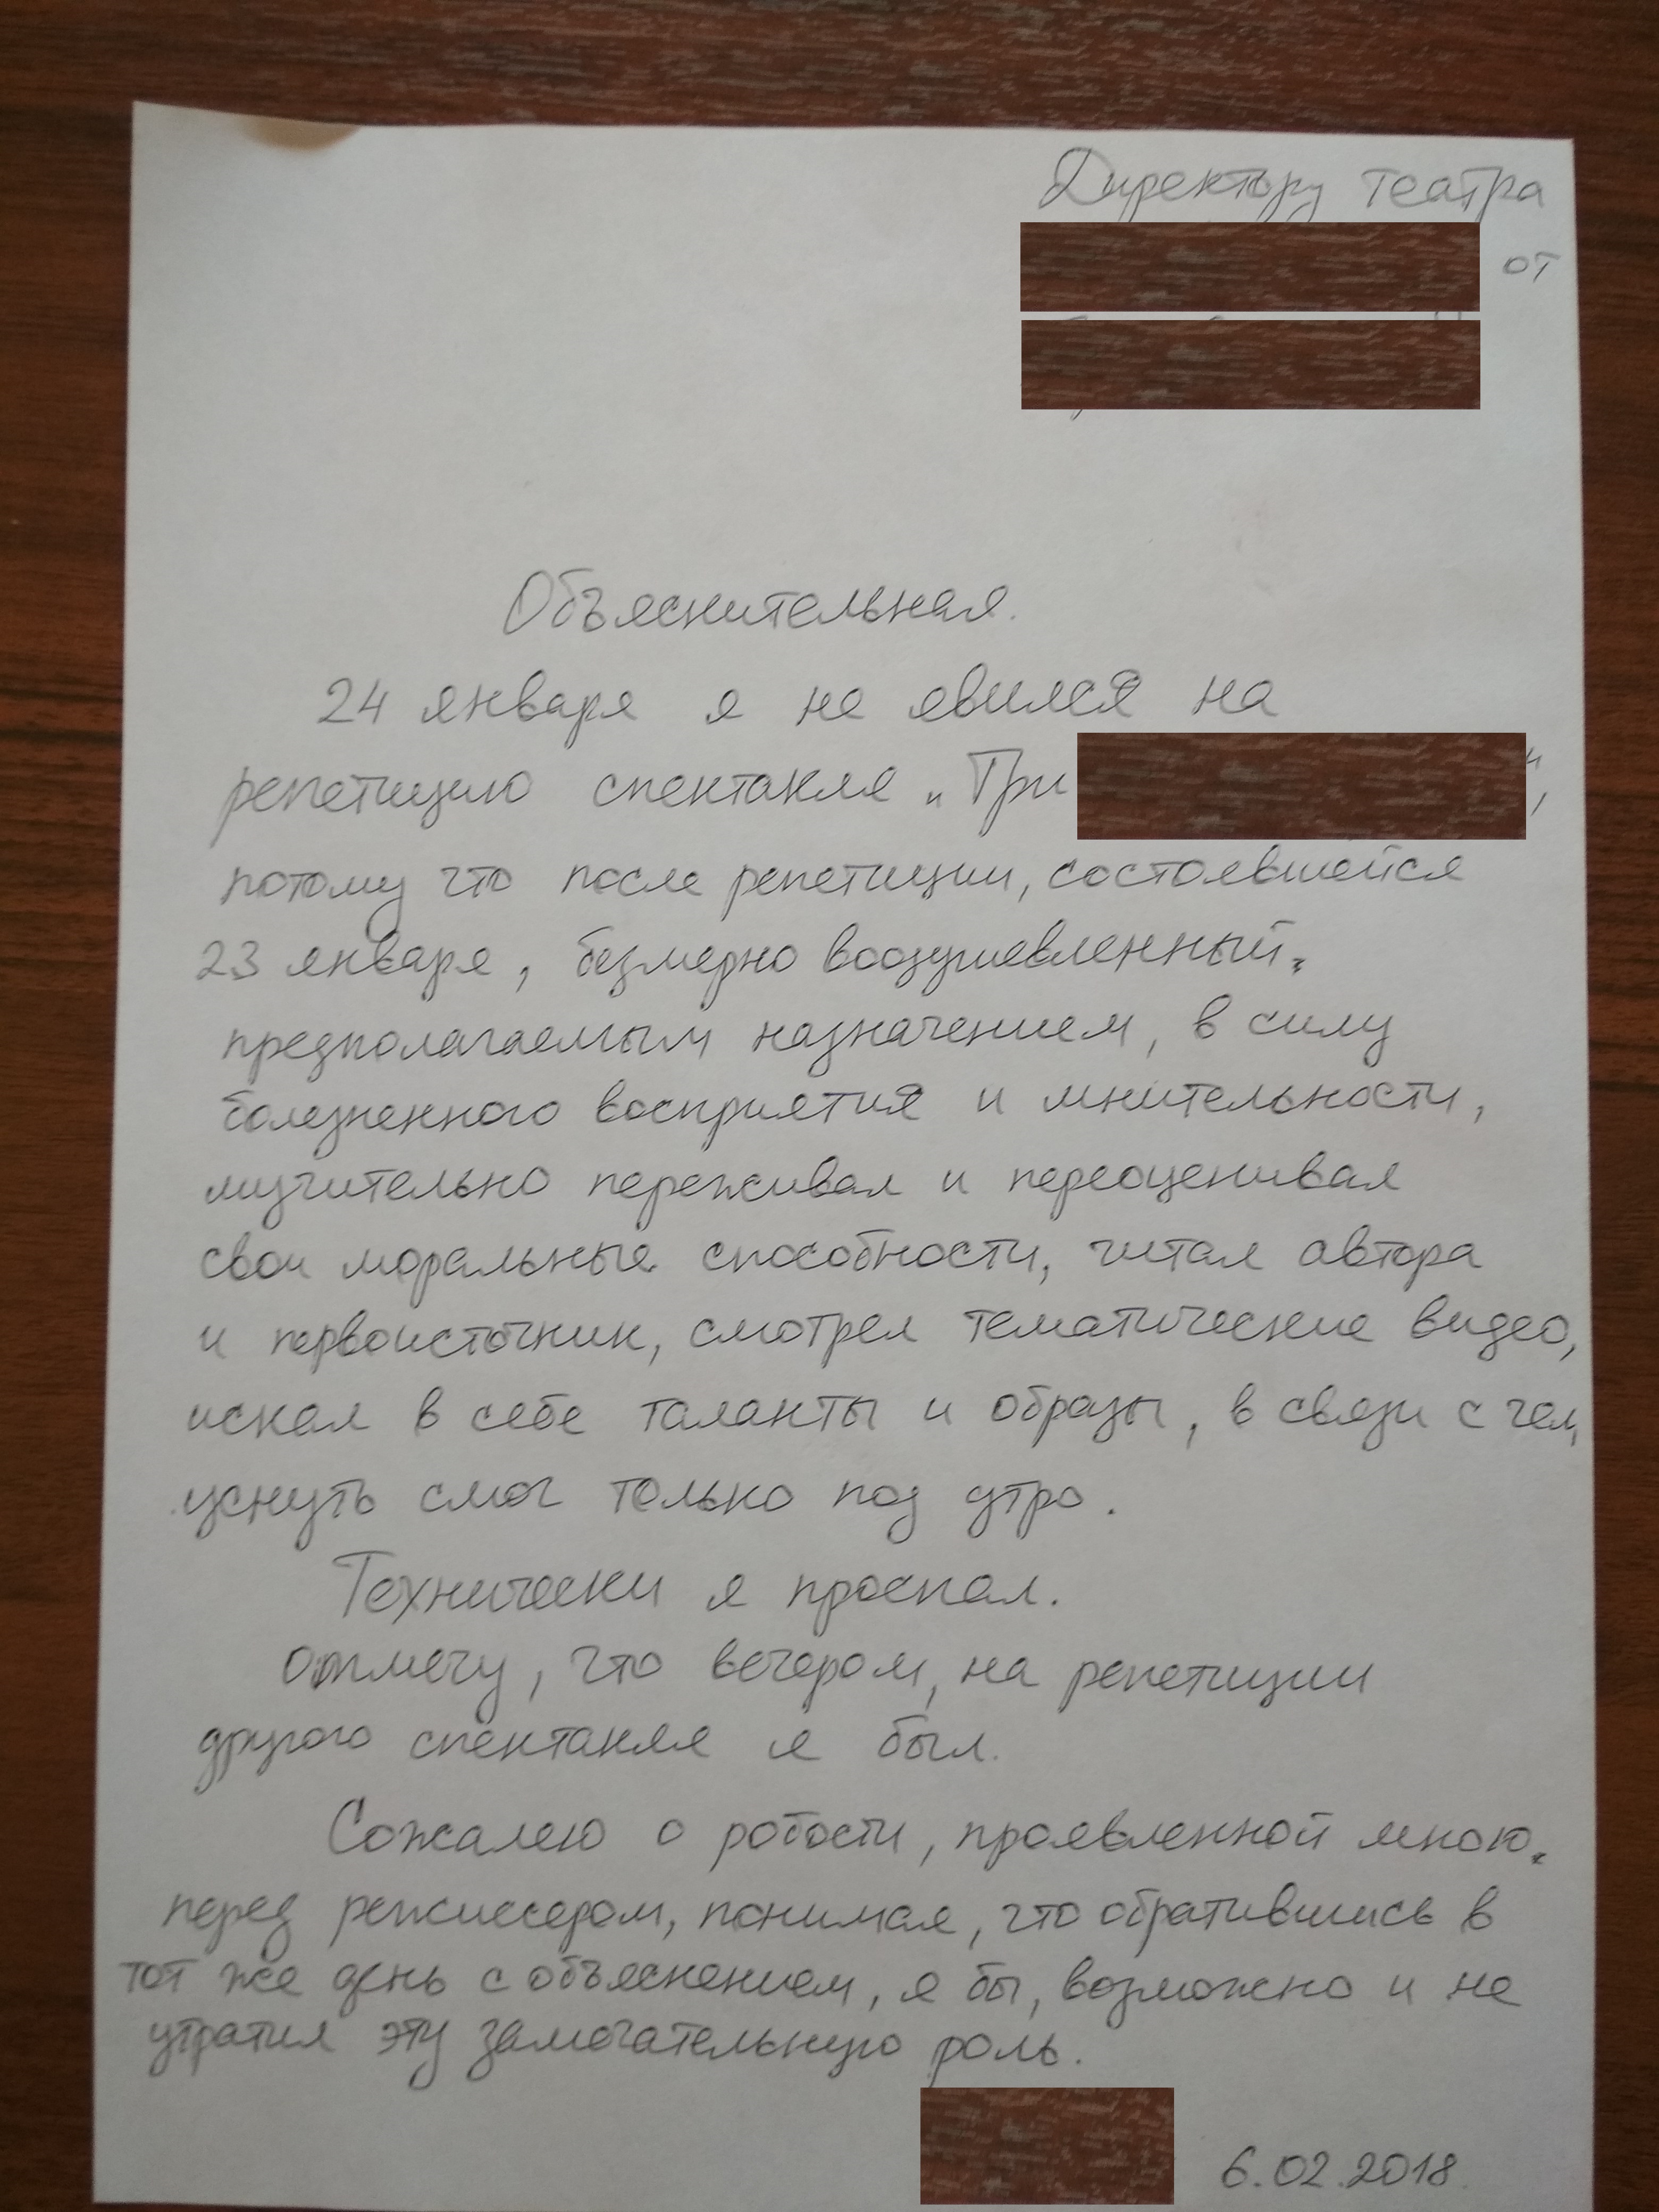 Директору театра
от
Объяснительная.
24 января я не явился на
репетицию спектакля „Три",
потому что после репетиции, состоявшейся
23 января, безмерно воодушевленный
предполагаемым назначением, в силу
болезненного восприятия и мнительности,
мучительно переживал и переоценивал
свои моральные способности, читал автора
и первоисточник, смотрел тематические видео,
искал в себе таланты и образы, в связи с чем,
уснуть смог только под утро.
Технически я проспал.
Отмечу, что вечером, на репетиции
другого спектакля я был.
Сожалею о робости, проявленной мною
перед режиссером, понимая, что обратившись в
тот же день с объяснением, я бы, возможно и не
утратил эту замечательную роль.
6.02.2018